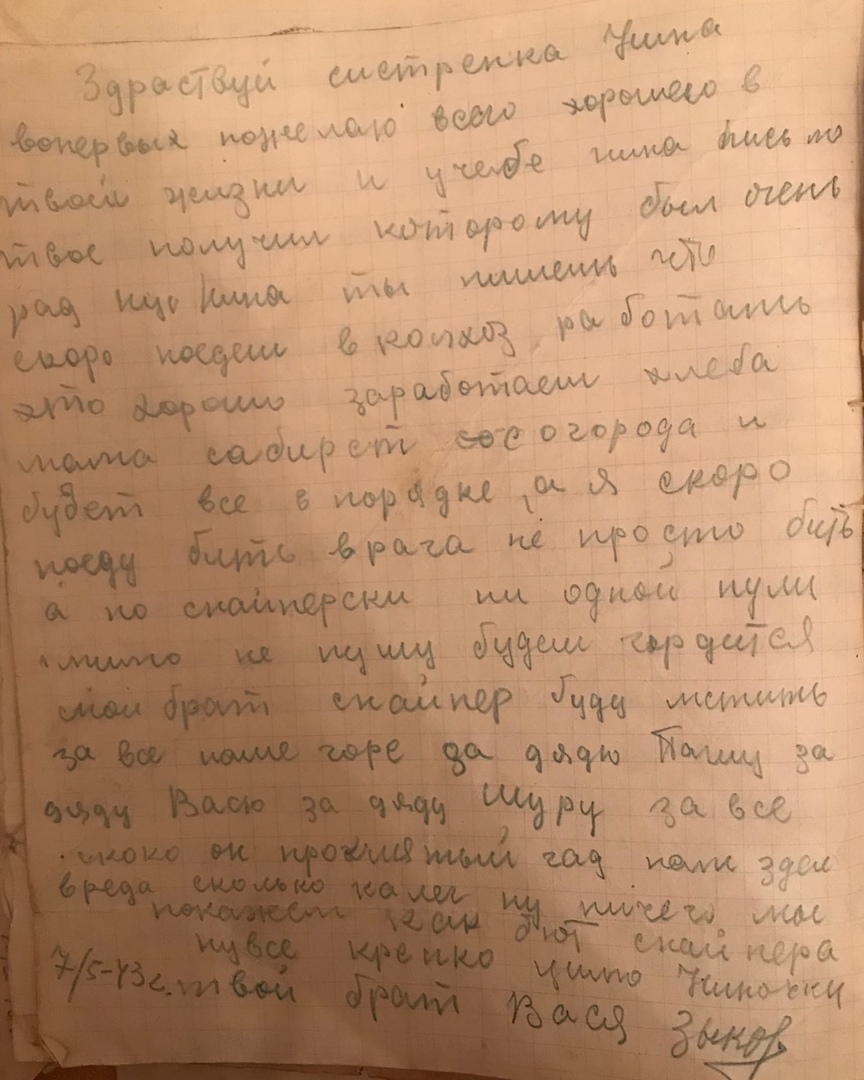 Здраствуй систренка Нина
вопервых пожелаю всего хорошего в
твоей жизни и учебе нина письмо
твое получил которому был очень
рад нус Нина ты пишешь что
скоро поедеш в колхоз работать
это хорошо заработаеш хлеба
мама сабирет с огорода и
будет все в порядке, а я скоро
поеду бить врага не просто бить
а по снайперски ни одной пули
мимо не пущу будеш гордится
мой брат снайпер буду мстить
за все наше горе за дядю Пашу за
дяду Васю за дяду Шуру за все
скоко он проклятый гад нам здел
вреда сколько калег ну ничего мы
покажем как бют снайпера
ну все крепко Ниночки
7/5-43г. твой брат Вася Зыков